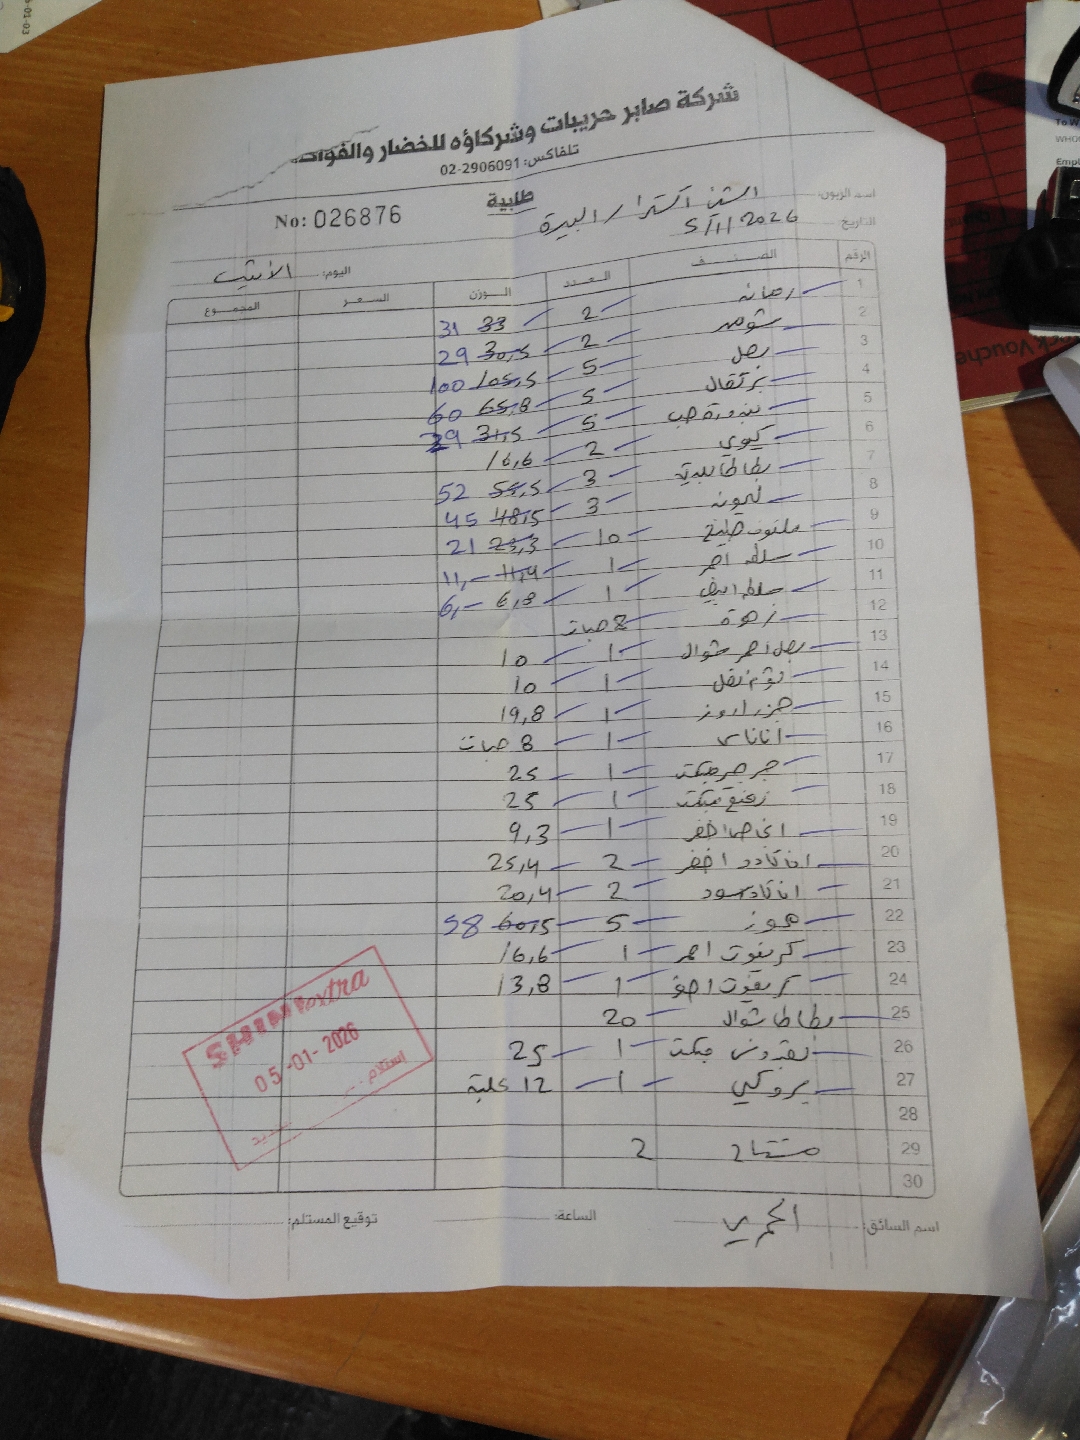 شركة صابر حريبات وشركاؤه للخضار والفواكه
تلفاكس: 02-2906091
طلبية
No: 026876
اسم الزبون: الشني اكسترا / البيرة
التاريخ: 5/1/2026
اليوم: الاثنين
الرقم الصنف العدد الوزن السعر المجموع
1 رمانه 2 33 31
2 شومر 2 30,5 29
3 بصل 5 105,5 100
4 برتقال 5 65,8 60
5 بندورة حب 5 31,5 29
6 كيوي 2 16,6
7 بطاطا بلدية 3 54,5 52
8 ليمونه 3 48,5 45
9 ملفوف 10 23,3 21
10 سلطه احمر 1 11,4 11,-
11 سلطه ابيض 1 6,8 6,-
12 زهرة 8 حبات
13 بصل احمر شوال 1 10
14 ثوم فل 1 10
15 جزر 1 19,8
16 اناناس 1 8 حبات
17 جرجير مبكت 1 25
18 مبكت 1 25
19 اخضر 1 9,3
20 افاكادو اخضر 2 25,4
21 افاكادو اسود 2 20,4
22 موز 5 60,5 58
23 كريفوت احمر 1 16,6
24 كريفوت 1 13,8
25 بطاطا شوال 20
26 بقدونس مبكت 1 25
27 بروكلي 1 12 علبة
28
29 2
30
SHINI extra
05-01-2026
استلام
اسم السائق:
الساعة:
توقيع المستلم:
Stock Vouche